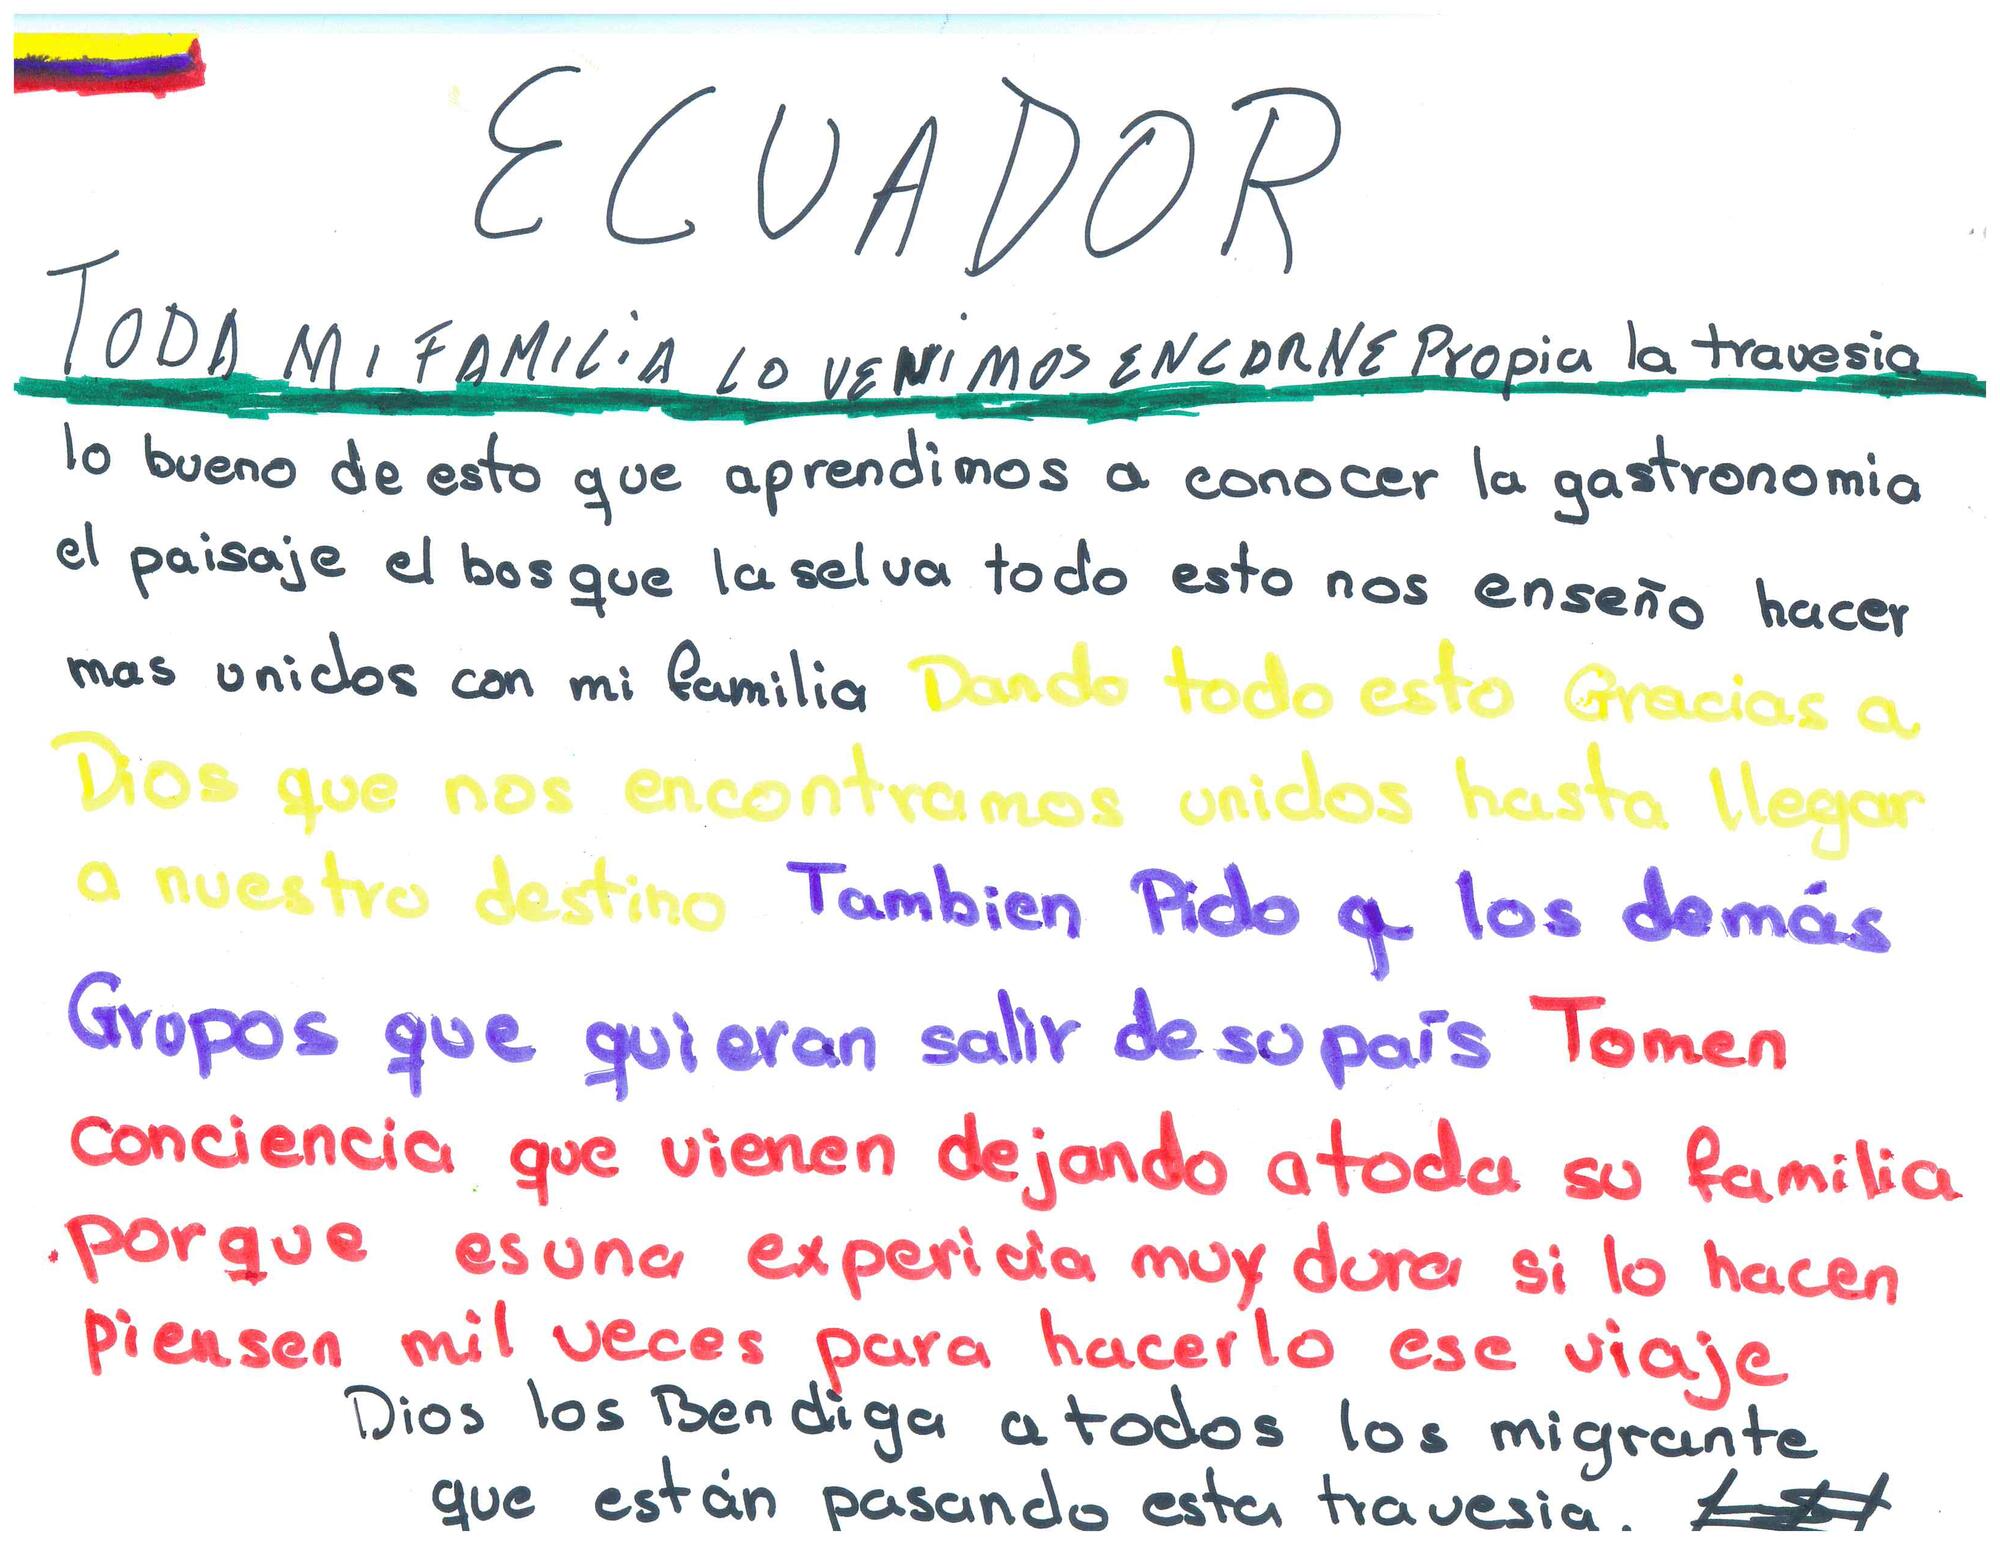 ECUADOR
TODA MI FAMILiA LO VENIMOS ENCARNE Propia la travesia
lo bueno de esto que aprendimos a conocer la gastronomia
el paisaje el bosque la selva todo esto nos enseño hacer
mas unidos con mi familia Dando todo esto Gracias a
Dios que nos encontramos unidos hasta llegar
a nuestro destino Tambien Pido a los demás
Grupos que quieran salir de su país Tomen
conciencia que vienen dejando atoda su familia
porque es una expericia muy dura si lo hacen
piensen mil veces para hacerlo ese viaje
Dios los Bendiga a todos los migrante
que están pasando esta travesia.